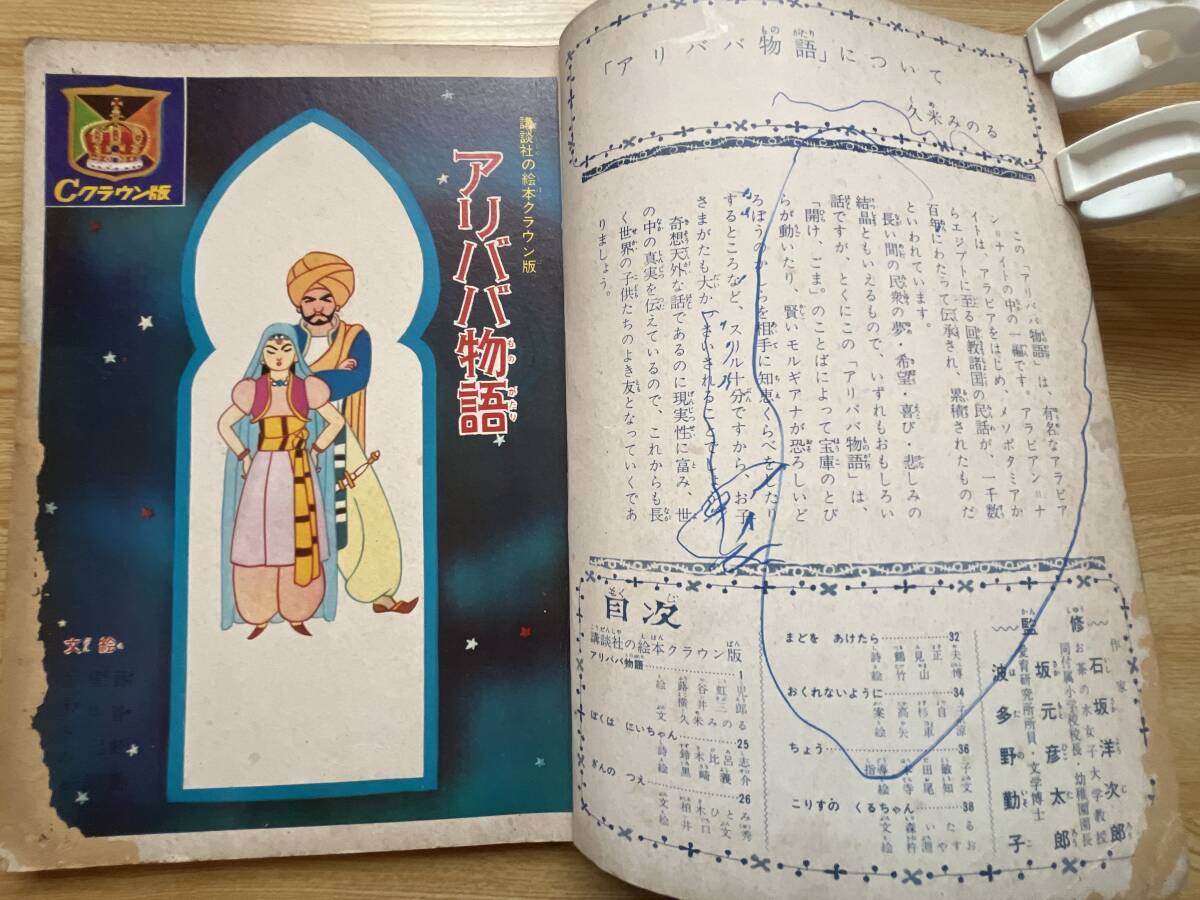 Cクラウン版
講談社の絵本クラウン版
アリババ物語
文 絵
「アリババ物語」について
久米みのる
この「アリババ物語」は、有名なアラビア
ン=ナイトの中の一編です。アラビアン=ナ
イトは、アラビアをはじめ、メソポタミアか
らエジプトに至る回教諸国の民話が、一千数
百年にわたって伝承され、累積されたものだ
といわれています。
長い間の民衆の夢・希望・喜び・悲しみの
結晶ともいえるもので、いずれもおもしろい
話ですが、とくにこの「アリババ物語」は、
「開け、ごま。」のことばによって宝庫のとび
らが動いたり、賢いモルギアナが恐ろしいど
ろぼうのかしらを相手に知恵くらべをしたり
するところなど、スリル十分ですから、お子
さまがたも大かっさいされることでしょう。
奇想天外な話であるのに現実性に富み、世
の中の真実を伝えているので、これからも長
く世界の子供たちのよき友となっていくであ
りましょう。
目次
講談社の絵本クラウン版
アリババ物語 1
絵 蕗谷虹児
文 久米みのる
ぼくは にいちゃん 25
詩 鈴木比呂志
絵 黒崎義介
ぎんの つえ 26
まどを あけたら 32
詩 鶴見正夫
絵 竹山博
おくれないように 34
ちょう 36
こりすの くるちゃん 38
監修
作家 石坂洋次郎
お茶の水女子大学教授
同付属小学校校長・幼稚園園長
坂元彦太郎
愛育研究所所員・文学博士
波多野勤子